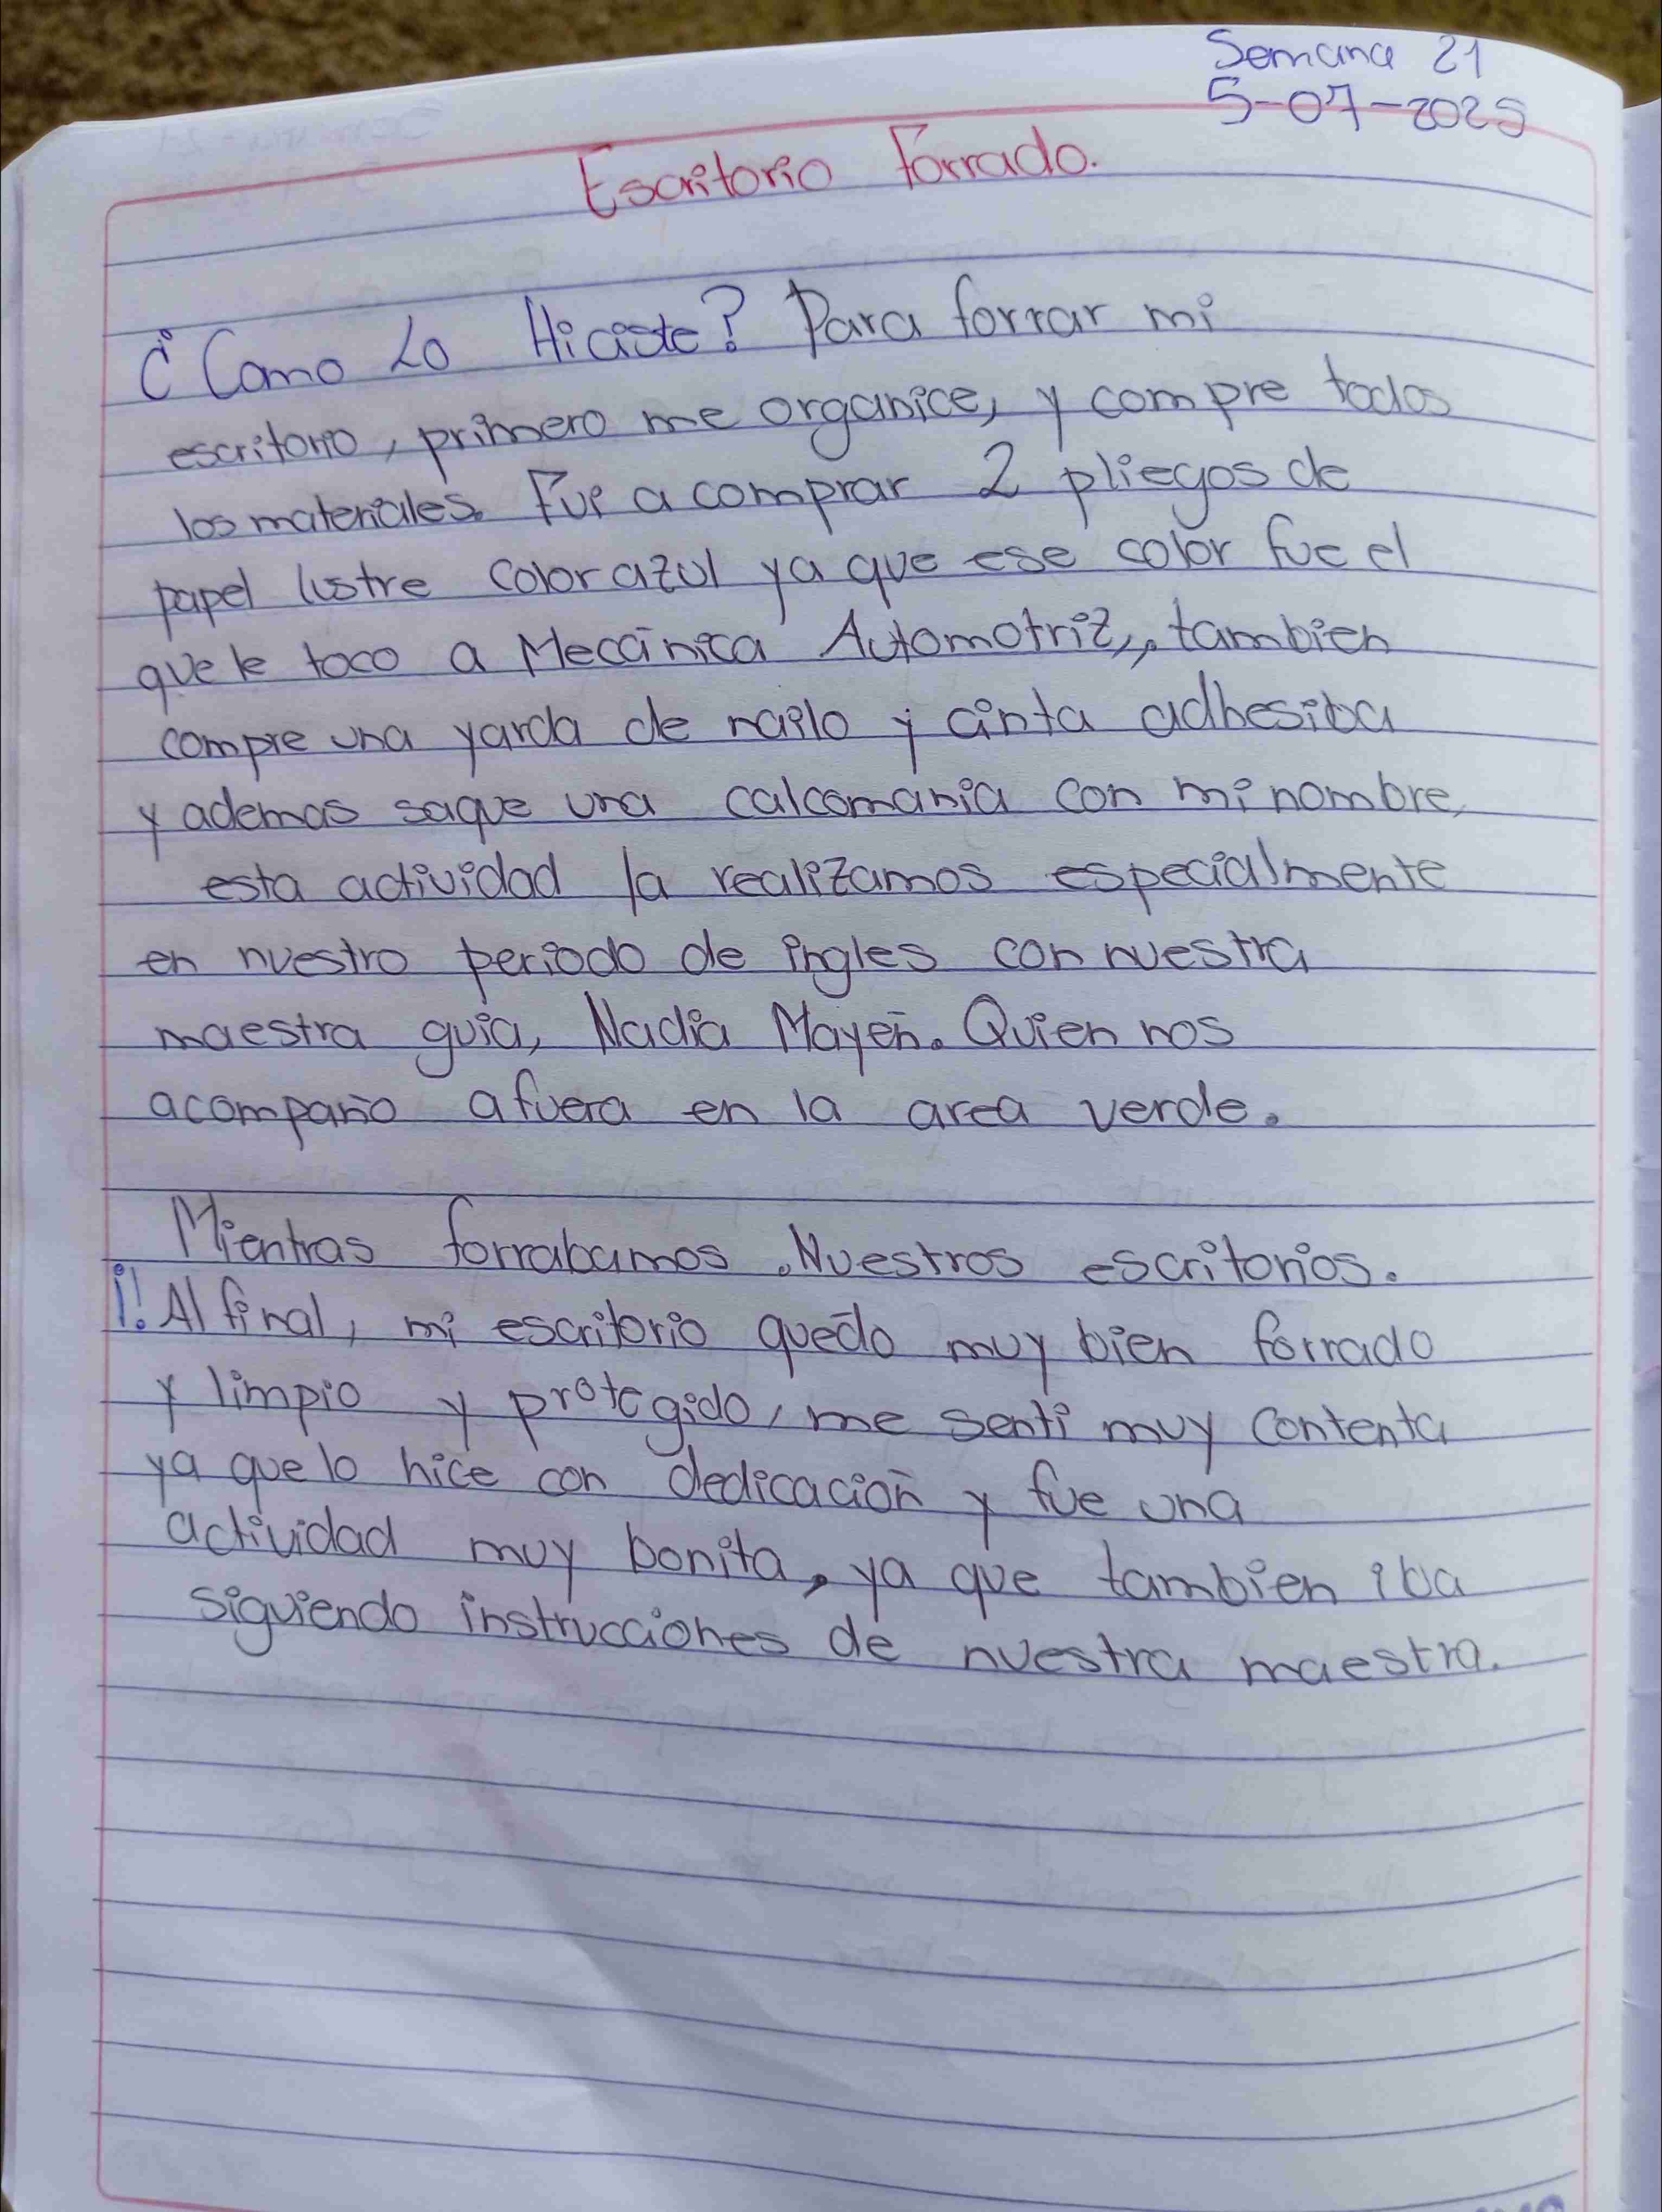 Semana 21
5-07-2025
Escritorio Forrado.
¿Como Lo Hiciste? Para forrar mi
escritorio, primero me organice, y compre todos
los materiales. Fui a comprar 2 pliegos de
papel lustre color azul ya que ese color fue el
que le toco a Mecánica Automotriz,, tambien
compre una yarda de nailo y cinta adhesiba
y ademas saque una calcomania con mi nombre,
esta actividad la realizamos especialmente
en nuestro periodo de ingles con nuestra
maestra guia, Nadia Mayén. Quien nos
acompaño afuera en la area verde.
Mientras forrabamos .Nuestros escritorios.
¡! Al final, mi escritorio quedó muy bien forrado
y limpio y protegido, me senti muy contenta
ya que lo hice con dedicación y fue una
actividad muy bonita, ya que tambien iba
siguiendo instrucciones de nuestra maestra.